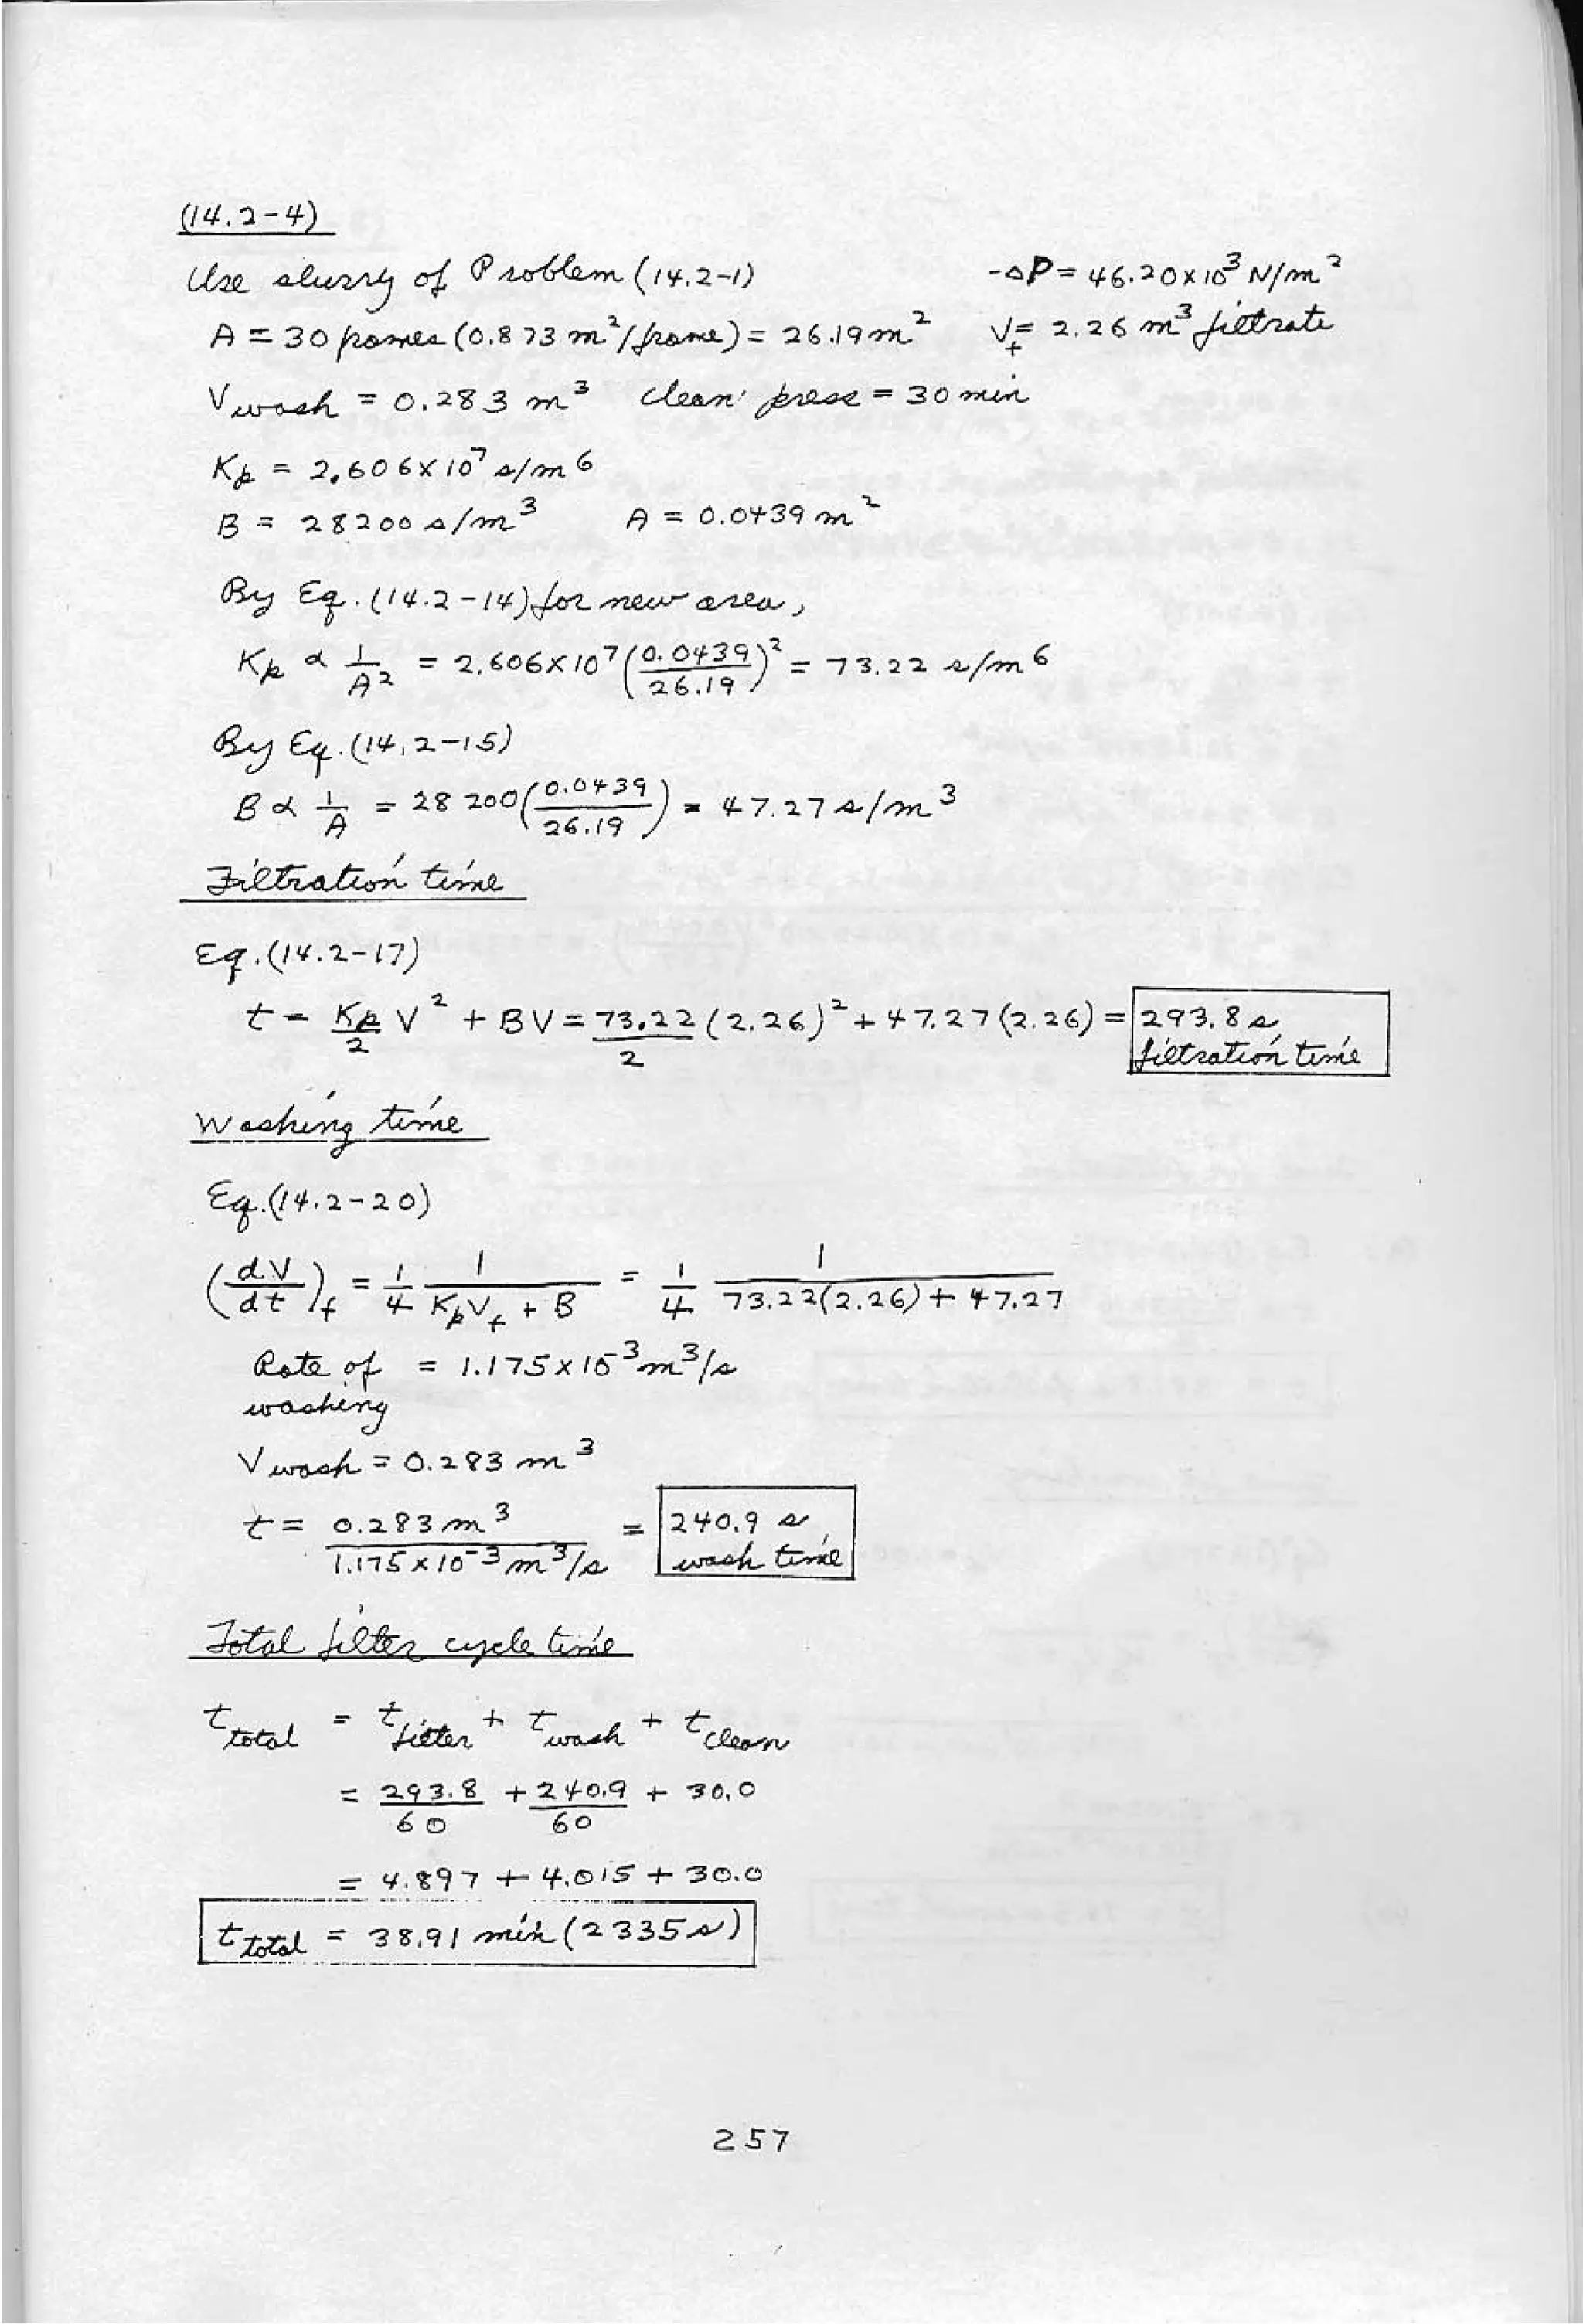 (14.2-4)
Use slurry of Problem (14.2-1) -ΔP = 46.20x10³ N/m²
A = 30 frames (0.873 m²/frame) = 26.19 m² V_f = 2.26 m³ filtrate
V wash = 0.283 m³ clean press = 30 min
Kp = 2.606x10⁷ s/m⁶
B = 28200 s/m³ A = 0.0439 m²
By Eq. (14.2-14) for new area,
Kp ∝ 1/A² = 2.606x10⁷ (0.0439/26.19)² = 73.22 s/m⁶
By Eq. (14.2-15)
B ∝ 1/A = 28 200 (0.0439/26.19) = 47.27 s/m³
Filtration time
Eq. (14.2-17)
t = Kp/2 V² + BV = 73.22/2 (2.26)² + 47.27 (2.26) = 293.8 s
filtration time
Washing time
Eq. (14.2-20)
(dV/dt)_f = 1/4 1/(KpV_f + B) = 1/4 1/(73.22(2.26) + 47.27)
Rate of = 1.175x10⁻³ m³/s
washing
V wash = 0.283 m³
t = 0.283 m³ / 1.175x10⁻³ m³/s = 240.9 s
wash time
Total filter cycle time
t total = t filter + t wash + t clean
= 293.8/60 + 240.9/60 + 30.0
= 4.897 + 4.015 + 30.0
t total = 38.91 min (2335 s)
257